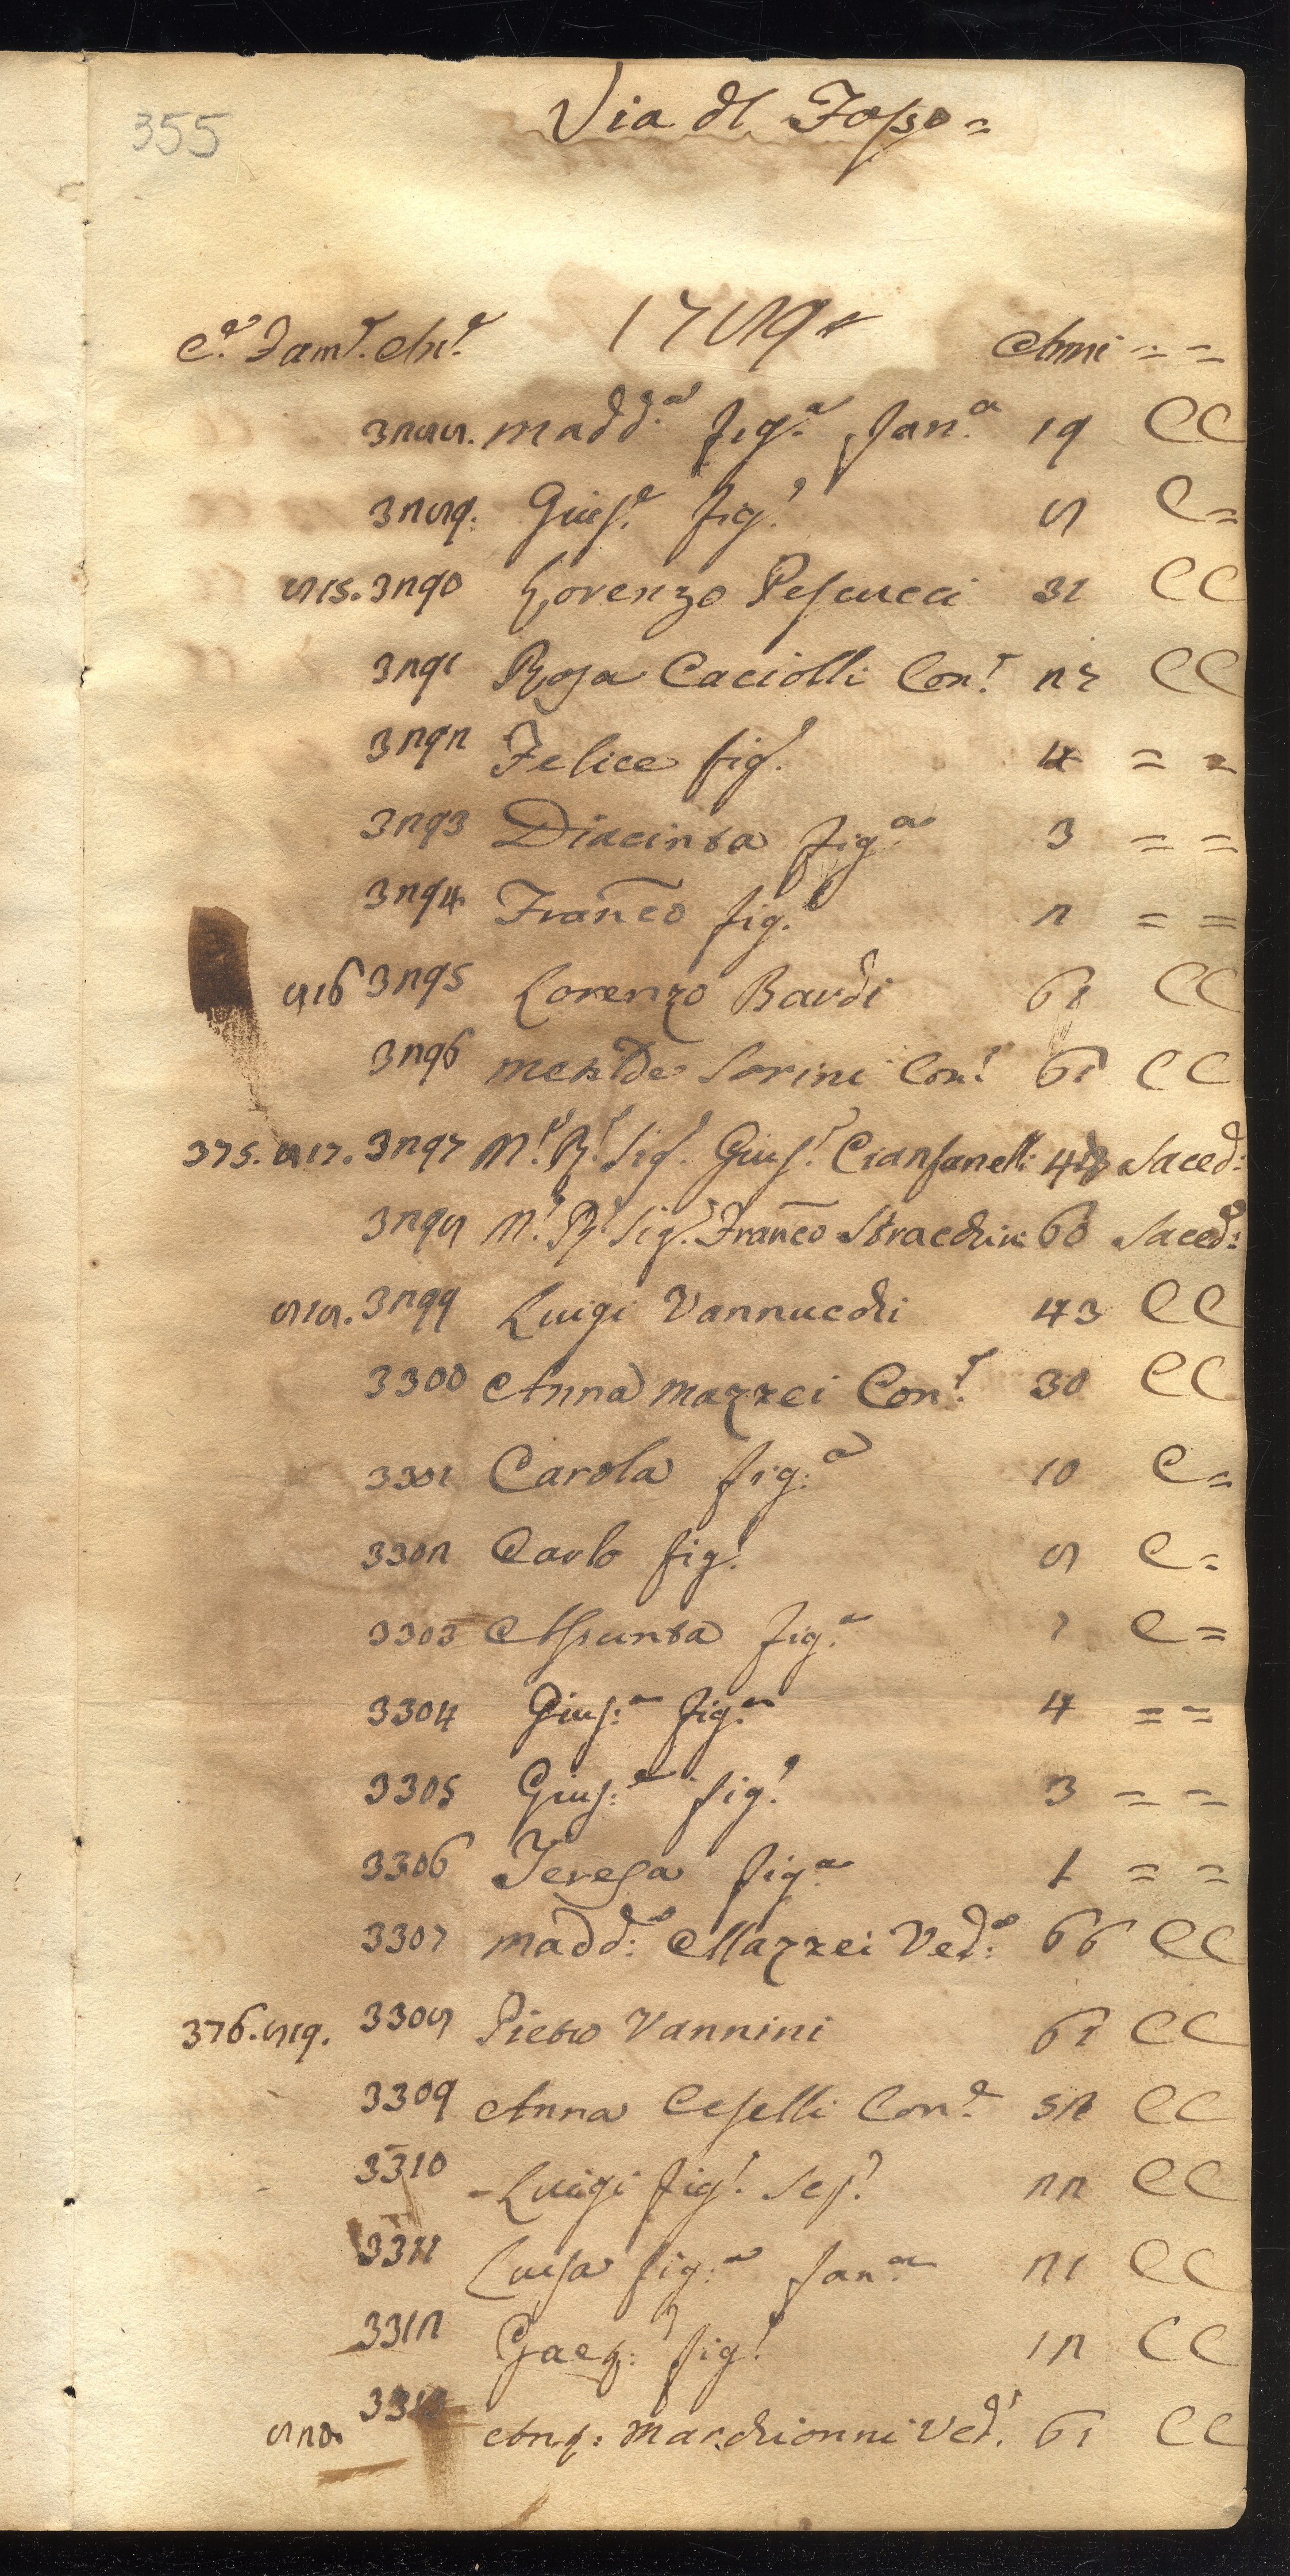 355
Via dl Fosso =
C.e Fam.e An.e 1789 Anni = =
3288. Madd.a fig.a fan.a 19 CC
3289. Gius.e fig.o 8 C=
815. 3290 Lorenzo Pescucci 31 CC
3291 Rosa Caciolli Con.e 22 CC
3292 Felice fig.o 4 = =
3293 Diacinta fig.a 3 = =
3294 Franco fig.o 2 = =
816 3295 Lorenzo Bardi 61 CC
3296 Sorini Con.e 61 CC
375. 817. 3297 M.o R.o Sig.r Gius.e Cianfanelli Saced:
3298 M.o R.o Sig.r Franco Stracchini 60 Saced:
818. 3299 Luigi Vannucchi 43 CC
3300 Anna Mazzei Con.e 30 CC
3301 Carola fig:a 10 C=
3302 Carlo fig.o 8 C=
3303 Assunta fig.a 7 C=
3304 Gius:a fig.a 4 = =
3305 Gius:e fig.o 3 = =
3306 Teresa fig.a 1 = =
3307 Madd:a Mazzei Ved:a 66 CC
376. 819. 3308 Pietro Vannini 61 CC
3309 Anna Ceselli Con.e 52 CC
3310 Luigi fig.o 22 CC
3311 Luisa fig:a fan.a 21 CC
3312 Gaet: fig.o 12 CC
820. 3313 Ang: Marchionni Ved.a 61 CC